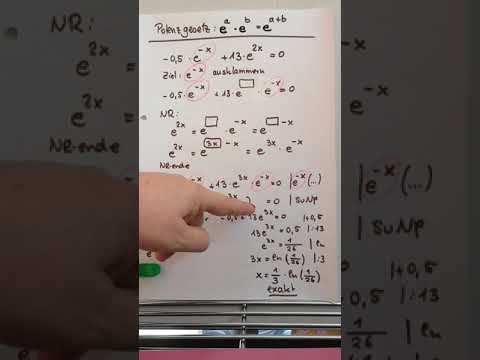 Potenzgesetz: e^a · e^b = e^(a+b)
-0,5 · e^(-x) + 13 · e^(2x) = 0
Ziel: e^(-x) ausklammern
-0,5 · e^(-x) + 13 · e^□ · e^(-x) = 0
NR:
e^(2x) = e^□ · e^(-x) = e^(□-x)
e^(2x) = e^(3x-x) = e^(3x) · e^(-x)
NR-ende
+ 13 · e^(3x) · e^(-x) = 0 | e^(-x) (...)
) = 0 | SvNp
-0,5 + 13e^(3x) = 0 | +0,5
13e^(3x) = 0,5 | :13
e^(3x) = 1/26 | ln
3x = ln(1/26) | :3
x = 1/3 · ln(1/26)
exakt
NR:
e^(2x)
e^(2x) =
NR-e
e^(-x) (...)
SvNp
|+0,5
0,5 | :13
1/26 | ln